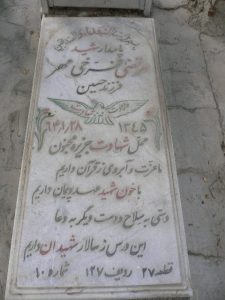 پاسدار شهید
مرتضی فرخی مهر
فرزند حسین
۶۴/۱/۲۸
۱۳۴۵
محل شهادت جزیره مجنون
ما عزت و آبروی ز قرآن داریم
با خون شهید عهد و پیمان داریم
دستی به سلاح و دست دیگر به دعا
این درس ز سالار شهیدان داریم
قطعه ۲۷ ردیف ۱۲۷ شماره ۱۰